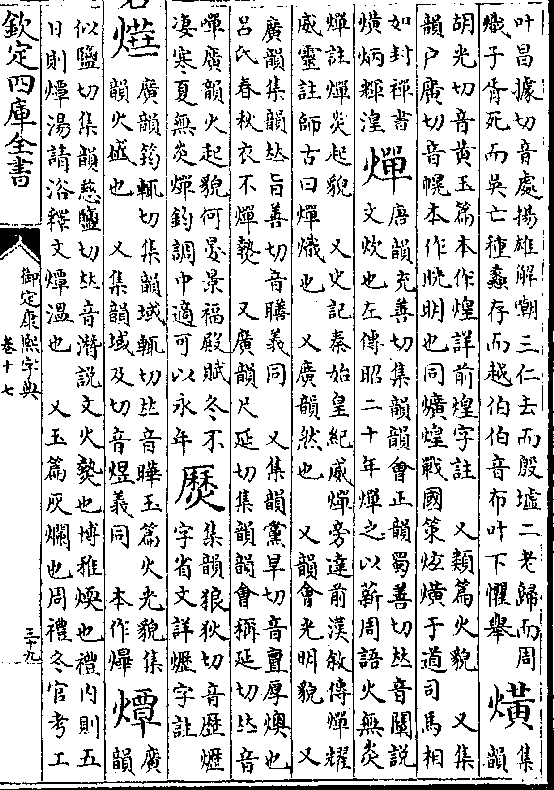 叶昌據切音處揚雄解嘲三仁去而殷墟二老歸而周
熾子胥死而吳亡種蠡存而越伯伯音布叶下懼舉
熿
集
韻
胡光切音黃玉篇本作煌詳前煌字註　又類篇火貌　又集
韻戶廣切音幌本作晄明也同爌煌戰國策炫熿于道司馬相
如封禪書
熿炳輝湟
燀
唐韻充善切集韻韻會正韻蜀善切𠀤音闡說
文炊也左傳昭二十年燀之以薪周語火無炎
燀註燀炎起貌　又史記秦始皇紀威燀旁達前漢敘傳燀耀
威靈註師古曰燀熾也　又廣韻然也　又韻會光明貌　又
廣韻集韻𠀤旨善切音膳義同　又集韻黨早切音亶厚燠也
呂氏春秋衣不燀熱　又廣韻尺延切集韻韻會稱延切𠀤音
嘽廣韻火起貌何晏景福殿賦冬不
凄寒夏無炎燀鈞調中適可以永年
集韻狼狄切音歷爏
字省文詳爏字註
燁
廣韻筠輒切集韻域輒切𠀤音曄玉篇火光貌集
韻火盛也　又集韻域及切音煜義同　本作爗
燂
廣
韻
似鹽切集韻慈鹽切𠀤音潛說文火熱也博雅煗也禮內則五
日則燂湯請浴釋文燂溫也　又玉篇灰爛也周禮冬官考工
欽定四庫全書
御定康熙字典
卷十七
三十九